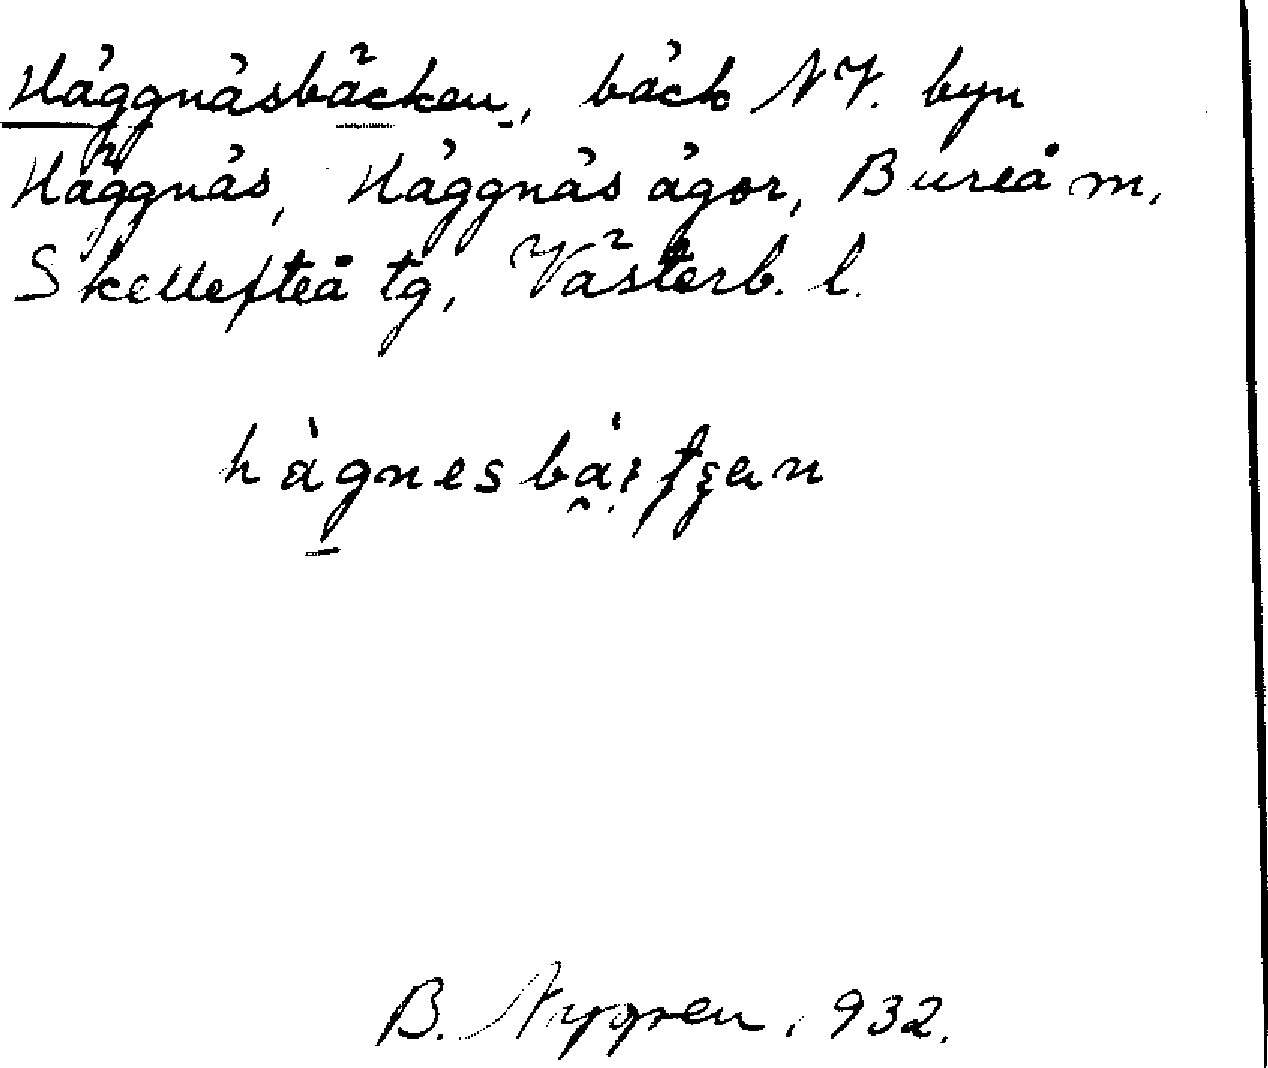 Häggnäsbäcken, bäck NV. byn
Häggnäs, Häggnäs ägor, Bureå m,
Skellefteå tg, Västerb. l.
B. Nygren, 932.